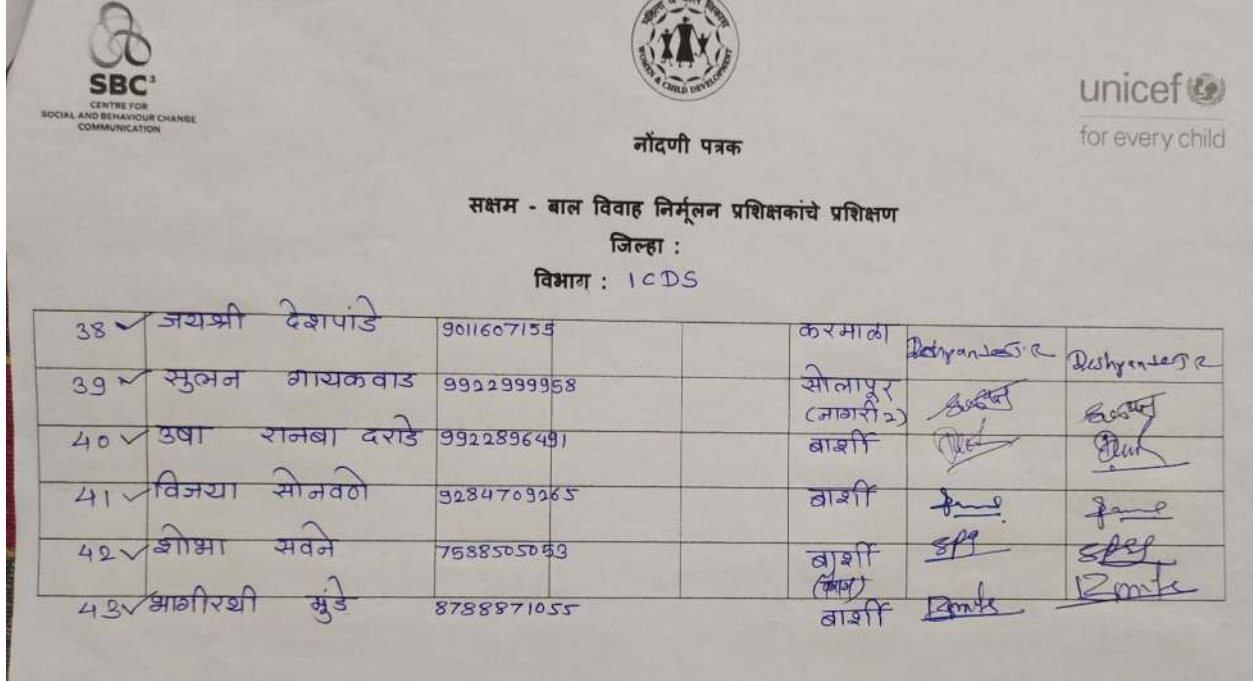 SBC³
CENTRE FOR
SOCIAL AND BEHAVIOUR CHANGE
COMMUNICATION
WOMEN & CHILD DEVELOPMENT
unicef
for every child
नोंदणी पत्रक
सक्षम - बाल विवाह निर्मूलन प्रशिक्षकांचे प्रशिक्षण
जिल्हा :
विभाग : ICDS
38 ✓ जयश्री देशपांडे 9011607155 करमाळा
39 ✓ सुलभन गायकवाड 9922999958 सोलापूर
(नागरी 2)
40 ✓ उषा रानबा दराडे 9922896491 बार्शी
41 ✓ विजया सोनवणे 9284709265 बार्शी
42 ✓ शोभा सवने 7588505053 बार्शी
43 ✓ भागीरथी मुंडे 8788871055 बार्शी